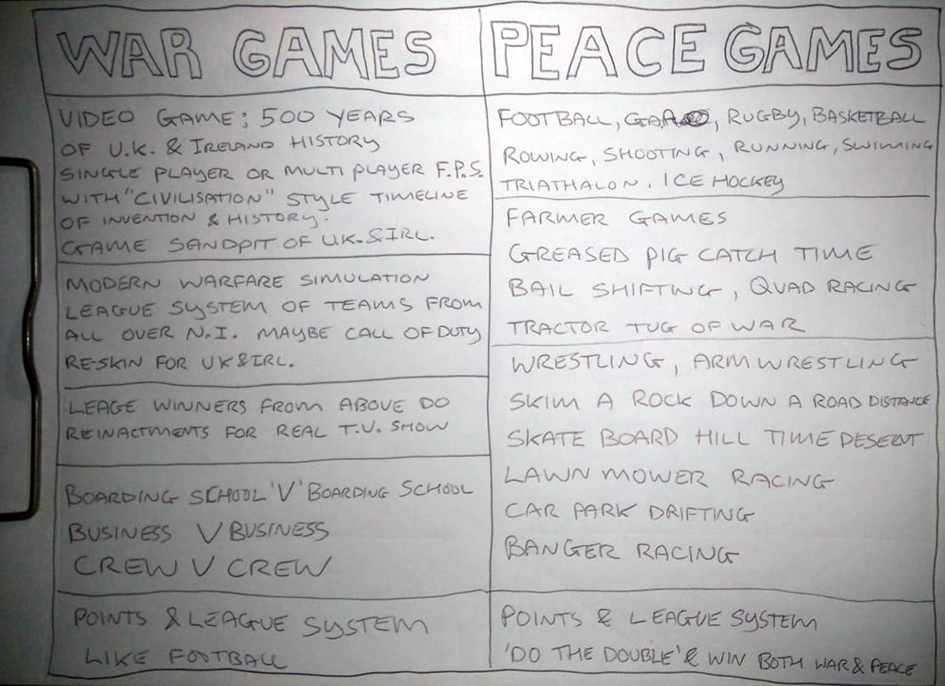 WAR GAMES
VIDEO GAME: 500 YEARS
OF U.K. & IRELAND HISTORY
SINGLE PLAYER OR MULTI PLAYER F.P.S.
WITH "CIVILISATION" STYLE TIMELINE
OF INVENTION & HISTORY.
GAME SANDPIT OF U.K. & IRL.
MODERN WARFARE SIMULATION
LEAGUE SYSTEM OF TEAMS FROM
ALL OVER N.I. MAYBE CALL OF DUTY
RE-SKIN FOR UK & IRL.
LEAGE WINNERS FROM ABOVE DO
REINACTMENTS FOR REAL T.V. SHOW
BOARDING SCHOOL 'V' BOARDING SCHOOL
BUSINESS V BUSINESS
CREW V CREW
POINTS & LEAGUE SYSTEM
LIKE FOOTBALL
PEACE GAMES
FOOTBALL, GAA, RUGBY, BASKETBALL
ROWING, SHOOTING, RUNNING, SWIMING
TRIATHALON, ICE HOCKEY
FARMER GAMES
GREASED PIG CATCH TIME
BAIL SHIFTING, QUAD RACING
TRACTOR TUG OF WAR
WRESTLING, ARM WRESTLING
SKIM A ROCK DOWN A ROAD DISTANCE
SKATE BOARD HILL TIME DESENT
LAWN MOWER RACING
CAR PARK DRIFTING
BANGER RACING
POINTS & LEAGUE SYSTEM
'DO THE DOUBLE' & WIN BOTH WAR & PEACE